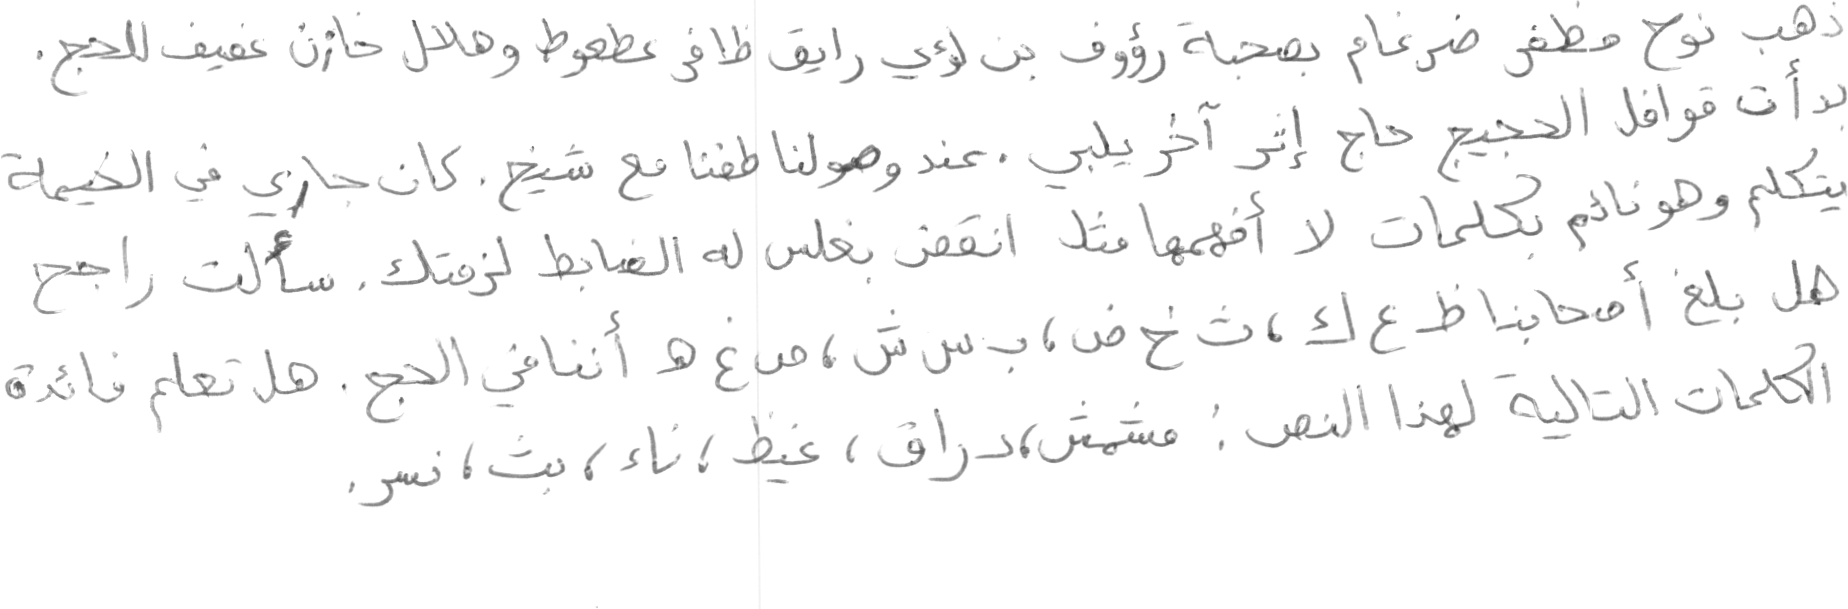 ذهب نوح مظفر ضرغام بصحبة رؤوف بن لؤي رايق ظافر عطعوط وهلال خازن عفيف للحج.
بدأت قوافل الحجيج حاج إثر آخر يلبي. عند وصولنا طفنا مع شيخ. كان جاري في الخيمة
يتكلم وهو نائم بكلمات لا أفهمها مثل انقض بغلس له الضابط لزمتك. سألت راجح
هل بلغ أصحابنا ظ ع ك، ث خ ض، ب س ش، ص غ ه أننا في الحج. هل تعلم فائدة
الكلمات التالية لهذا النص: مشمش، دراق، غيظ، ناء، بث، نسر.